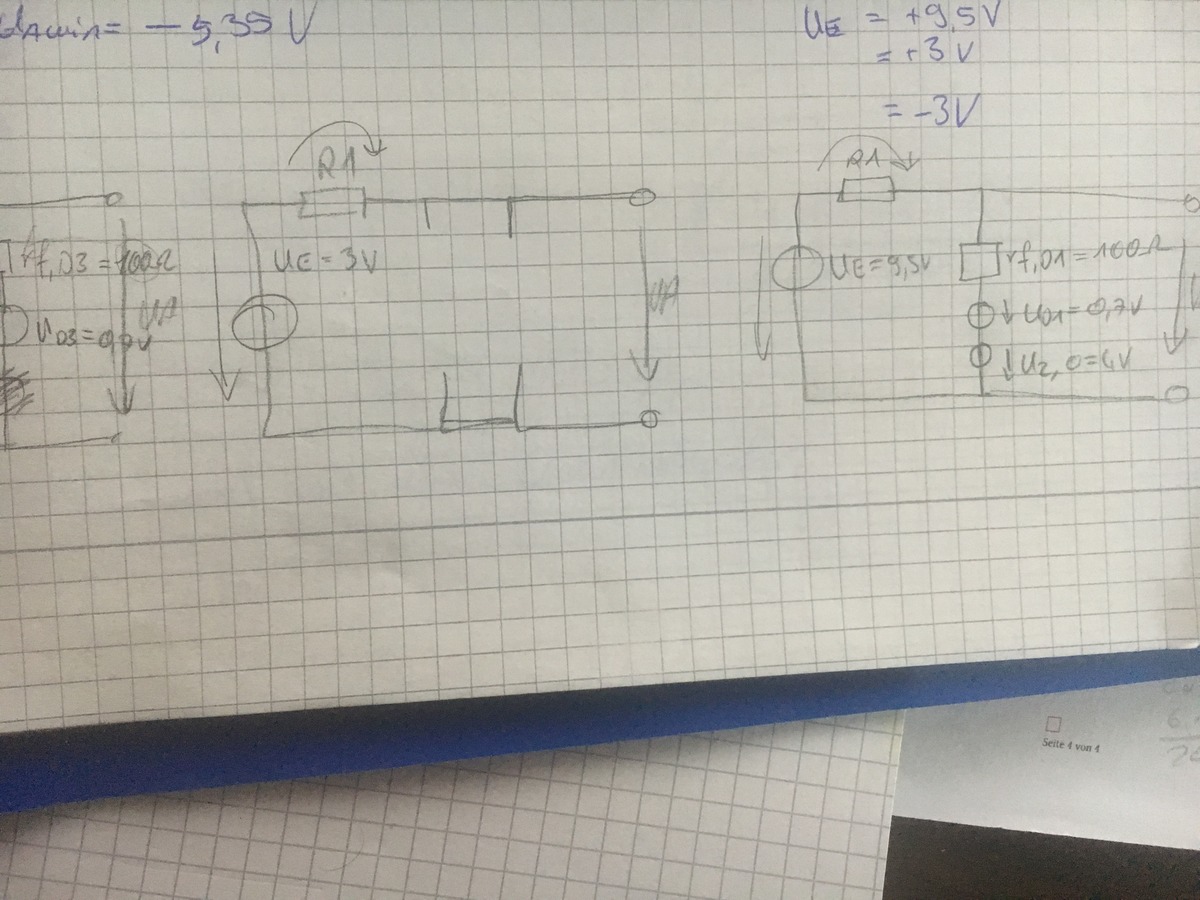 UAmin = - 5,35 V
UE = +9,5V
= +3V
= -3V
R1
R1
rf,D3 = 100Ω
UA
UD3 = 0,7V
UE = 3V
UA
UE = 9,5V
rf,D1 = 100Ω
UD1 = 0,7V
Uz,0 = 4V
Seite 4 von 4